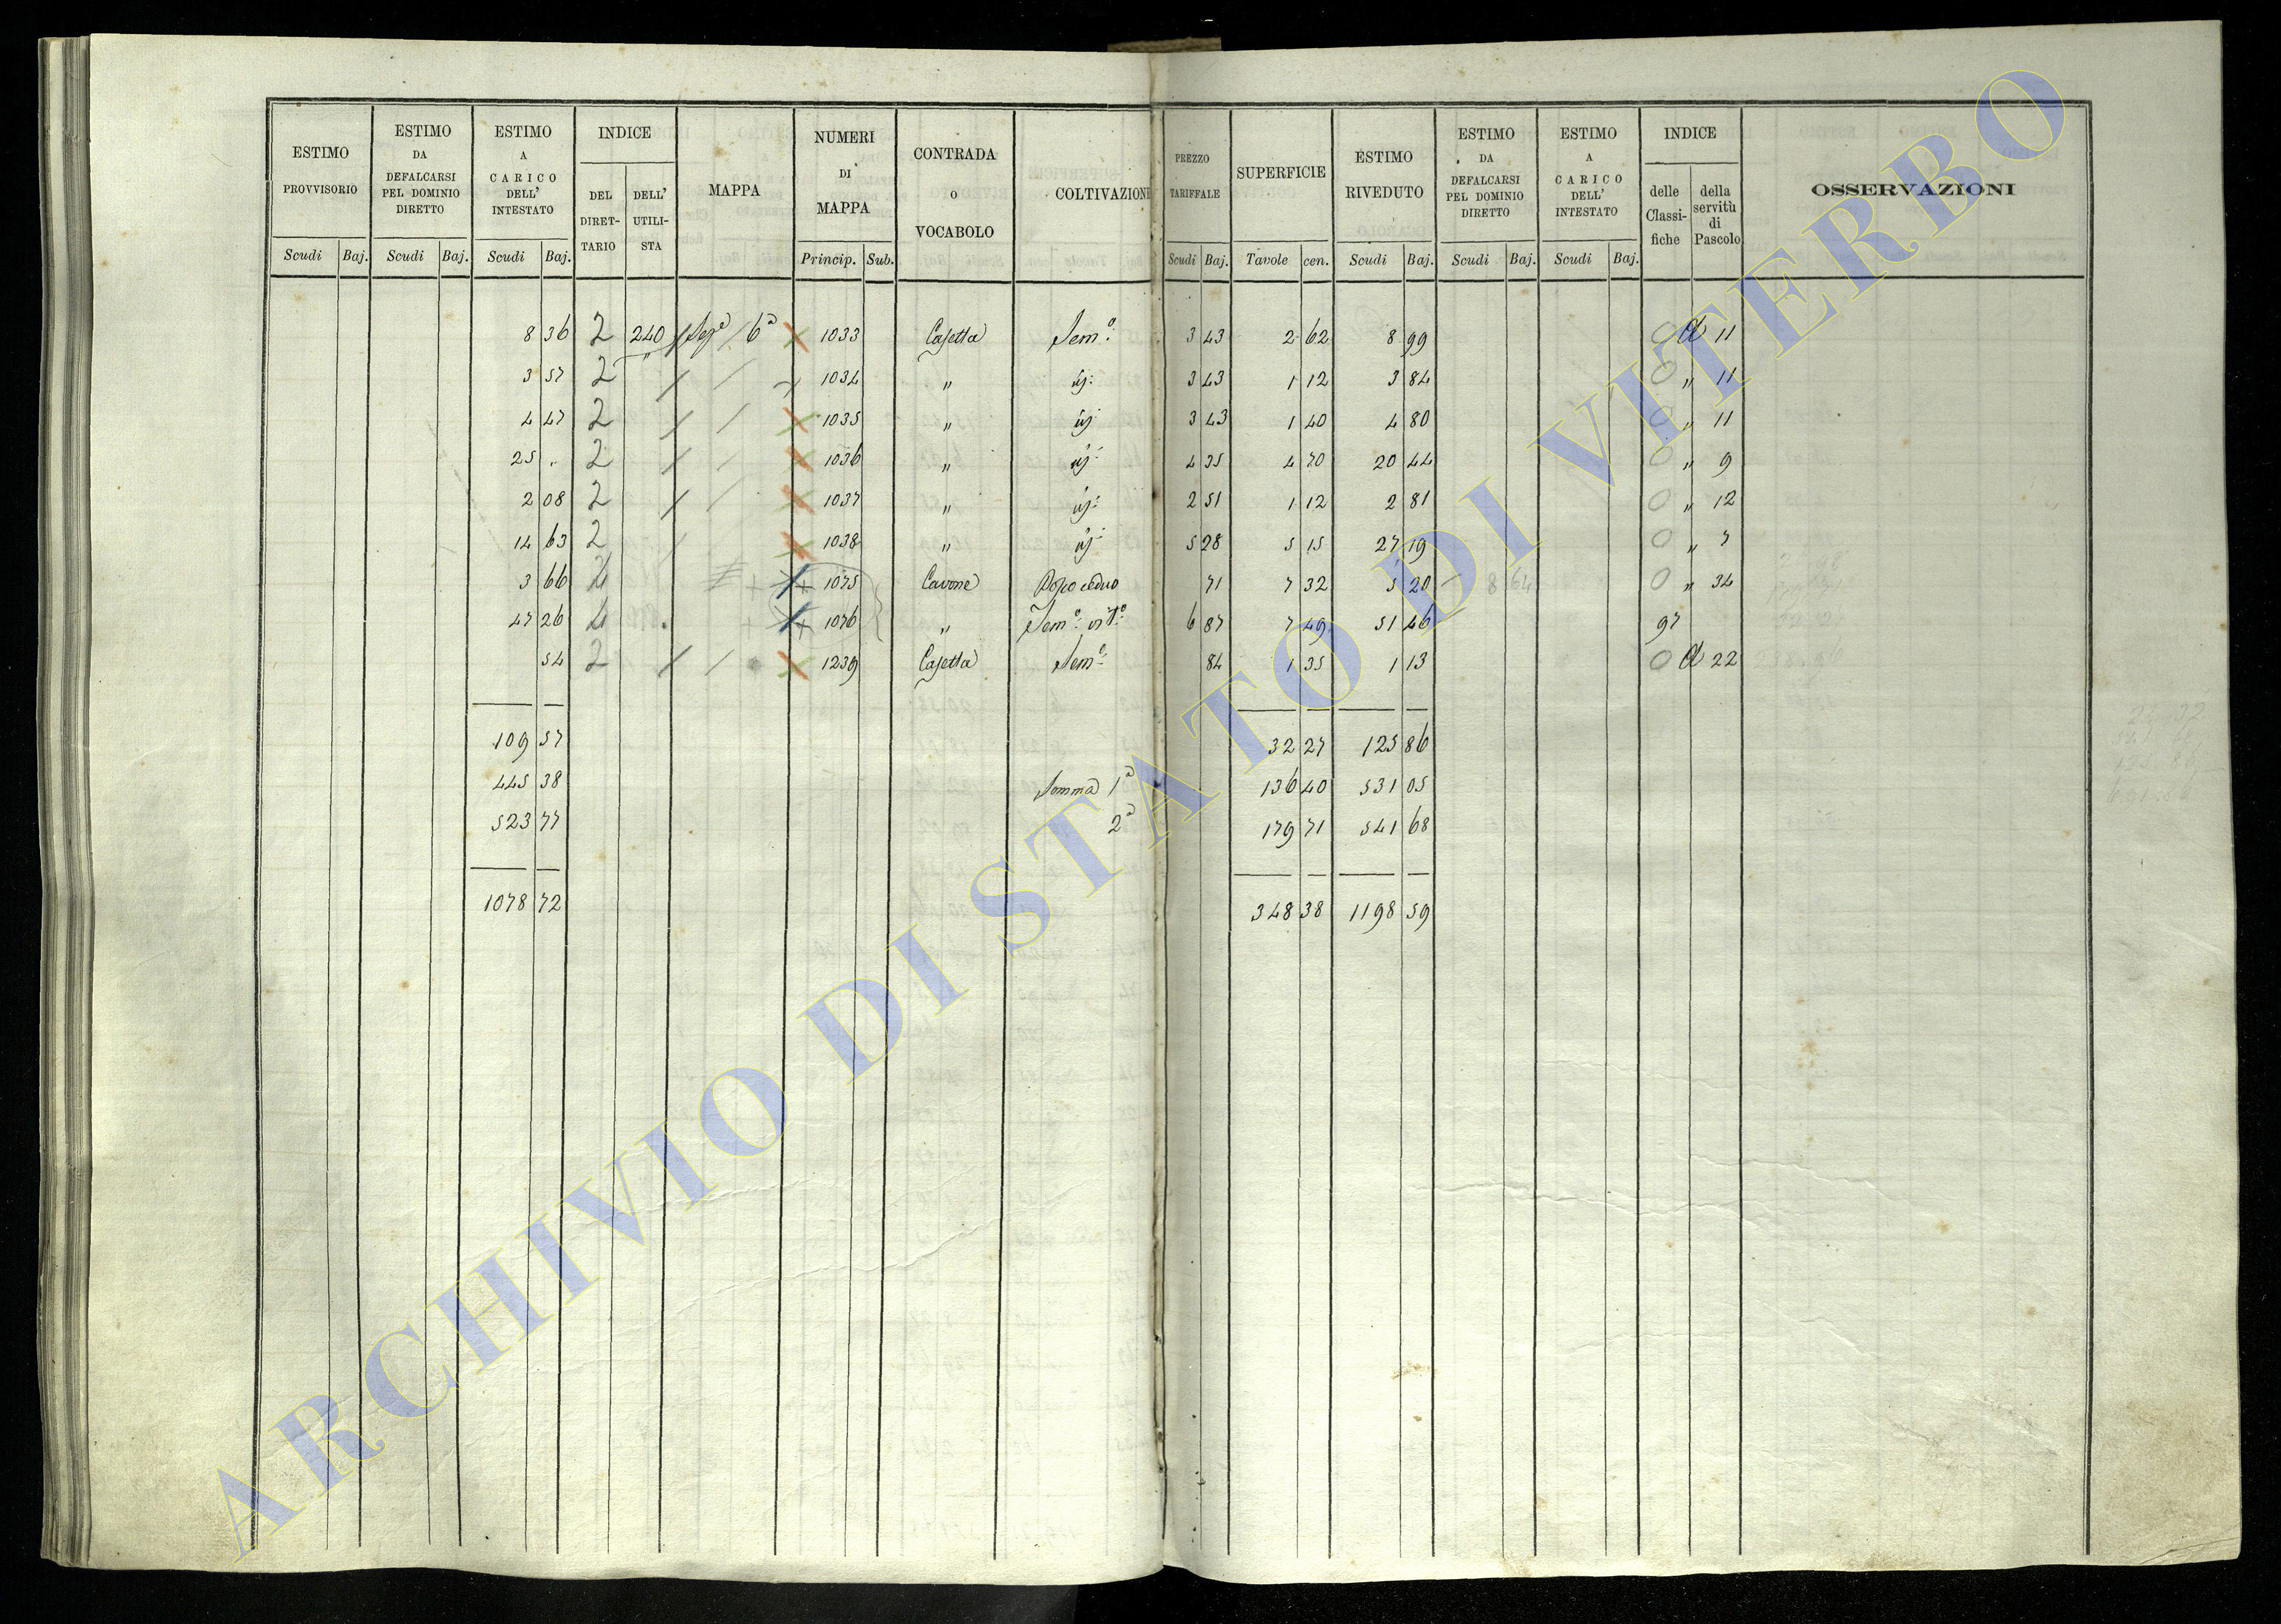 ESTIMO PROVVISORIO | ESTIMO DA DEFALCARSI PEL DOMINIO DIRETTO | ESTIMO A CARICO DELL' INTESTATO | INDICE DEL DIRETTARIO | DELL' UTILISTA | MAPPA | NUMERI DI MAPPA | CONTRADA O VOCABOLO | COLTIVAZIONE | PREZZO TARIFFALE | SUPERFICIE | ESTIMO RIVEDUTO | ESTIMO DA DEFALCARSI PEL DOMINIO DIRETTO | ESTIMO A CARICO DELL' INTESTATO | INDICE delle Classifiche | della servitù di Pascolo | OSSERVAZIONI
Scudi Baj. Scudi Baj. Scudi Baj. Princip. Sub. Scudi Baj. Tavole cen. Scudi Baj. Scudi Baj. Scudi Baj.
8 36 2 240 Seze 6a 1033 Casetta Semo: 3 43 2 62 8 99 0 A 11
3 57 2 " 1034 " id: 3 43 1 12 3 84 0 " 11
4 47 2 1035 " id: 3 43 1 40 4 80 0 " 11
25 . 2 1036 " id: 4 35 4 70 20 44 0 " 9
2 08 2 1037 " id: 2 51 1 12 2 81 0 " 12
14 63 2 1038 " id: 5 28 5 15 27 19 0 " 7
3 66 1075 Cavone ceduo 71 7 32 5 20 8 64 0 " 34
47 26 1076 " Semo: vito: 6 87 7 49 51 46 97
54 2 1239 Casetta Semo: 84 1 35 1 13 0 A 22
109 57 32 27 125 86
445 38 Somma 1a 136 40 531 05
523 77 2a 179 71 541 68
1078 72 348 38 1198 59
ARCHIVIO DI STATO DI VITERBO